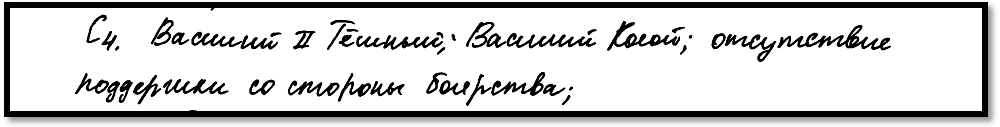 С4. Василий II Тёмный; Василий Косой; отсутствие
поддержки со стороны боярства;